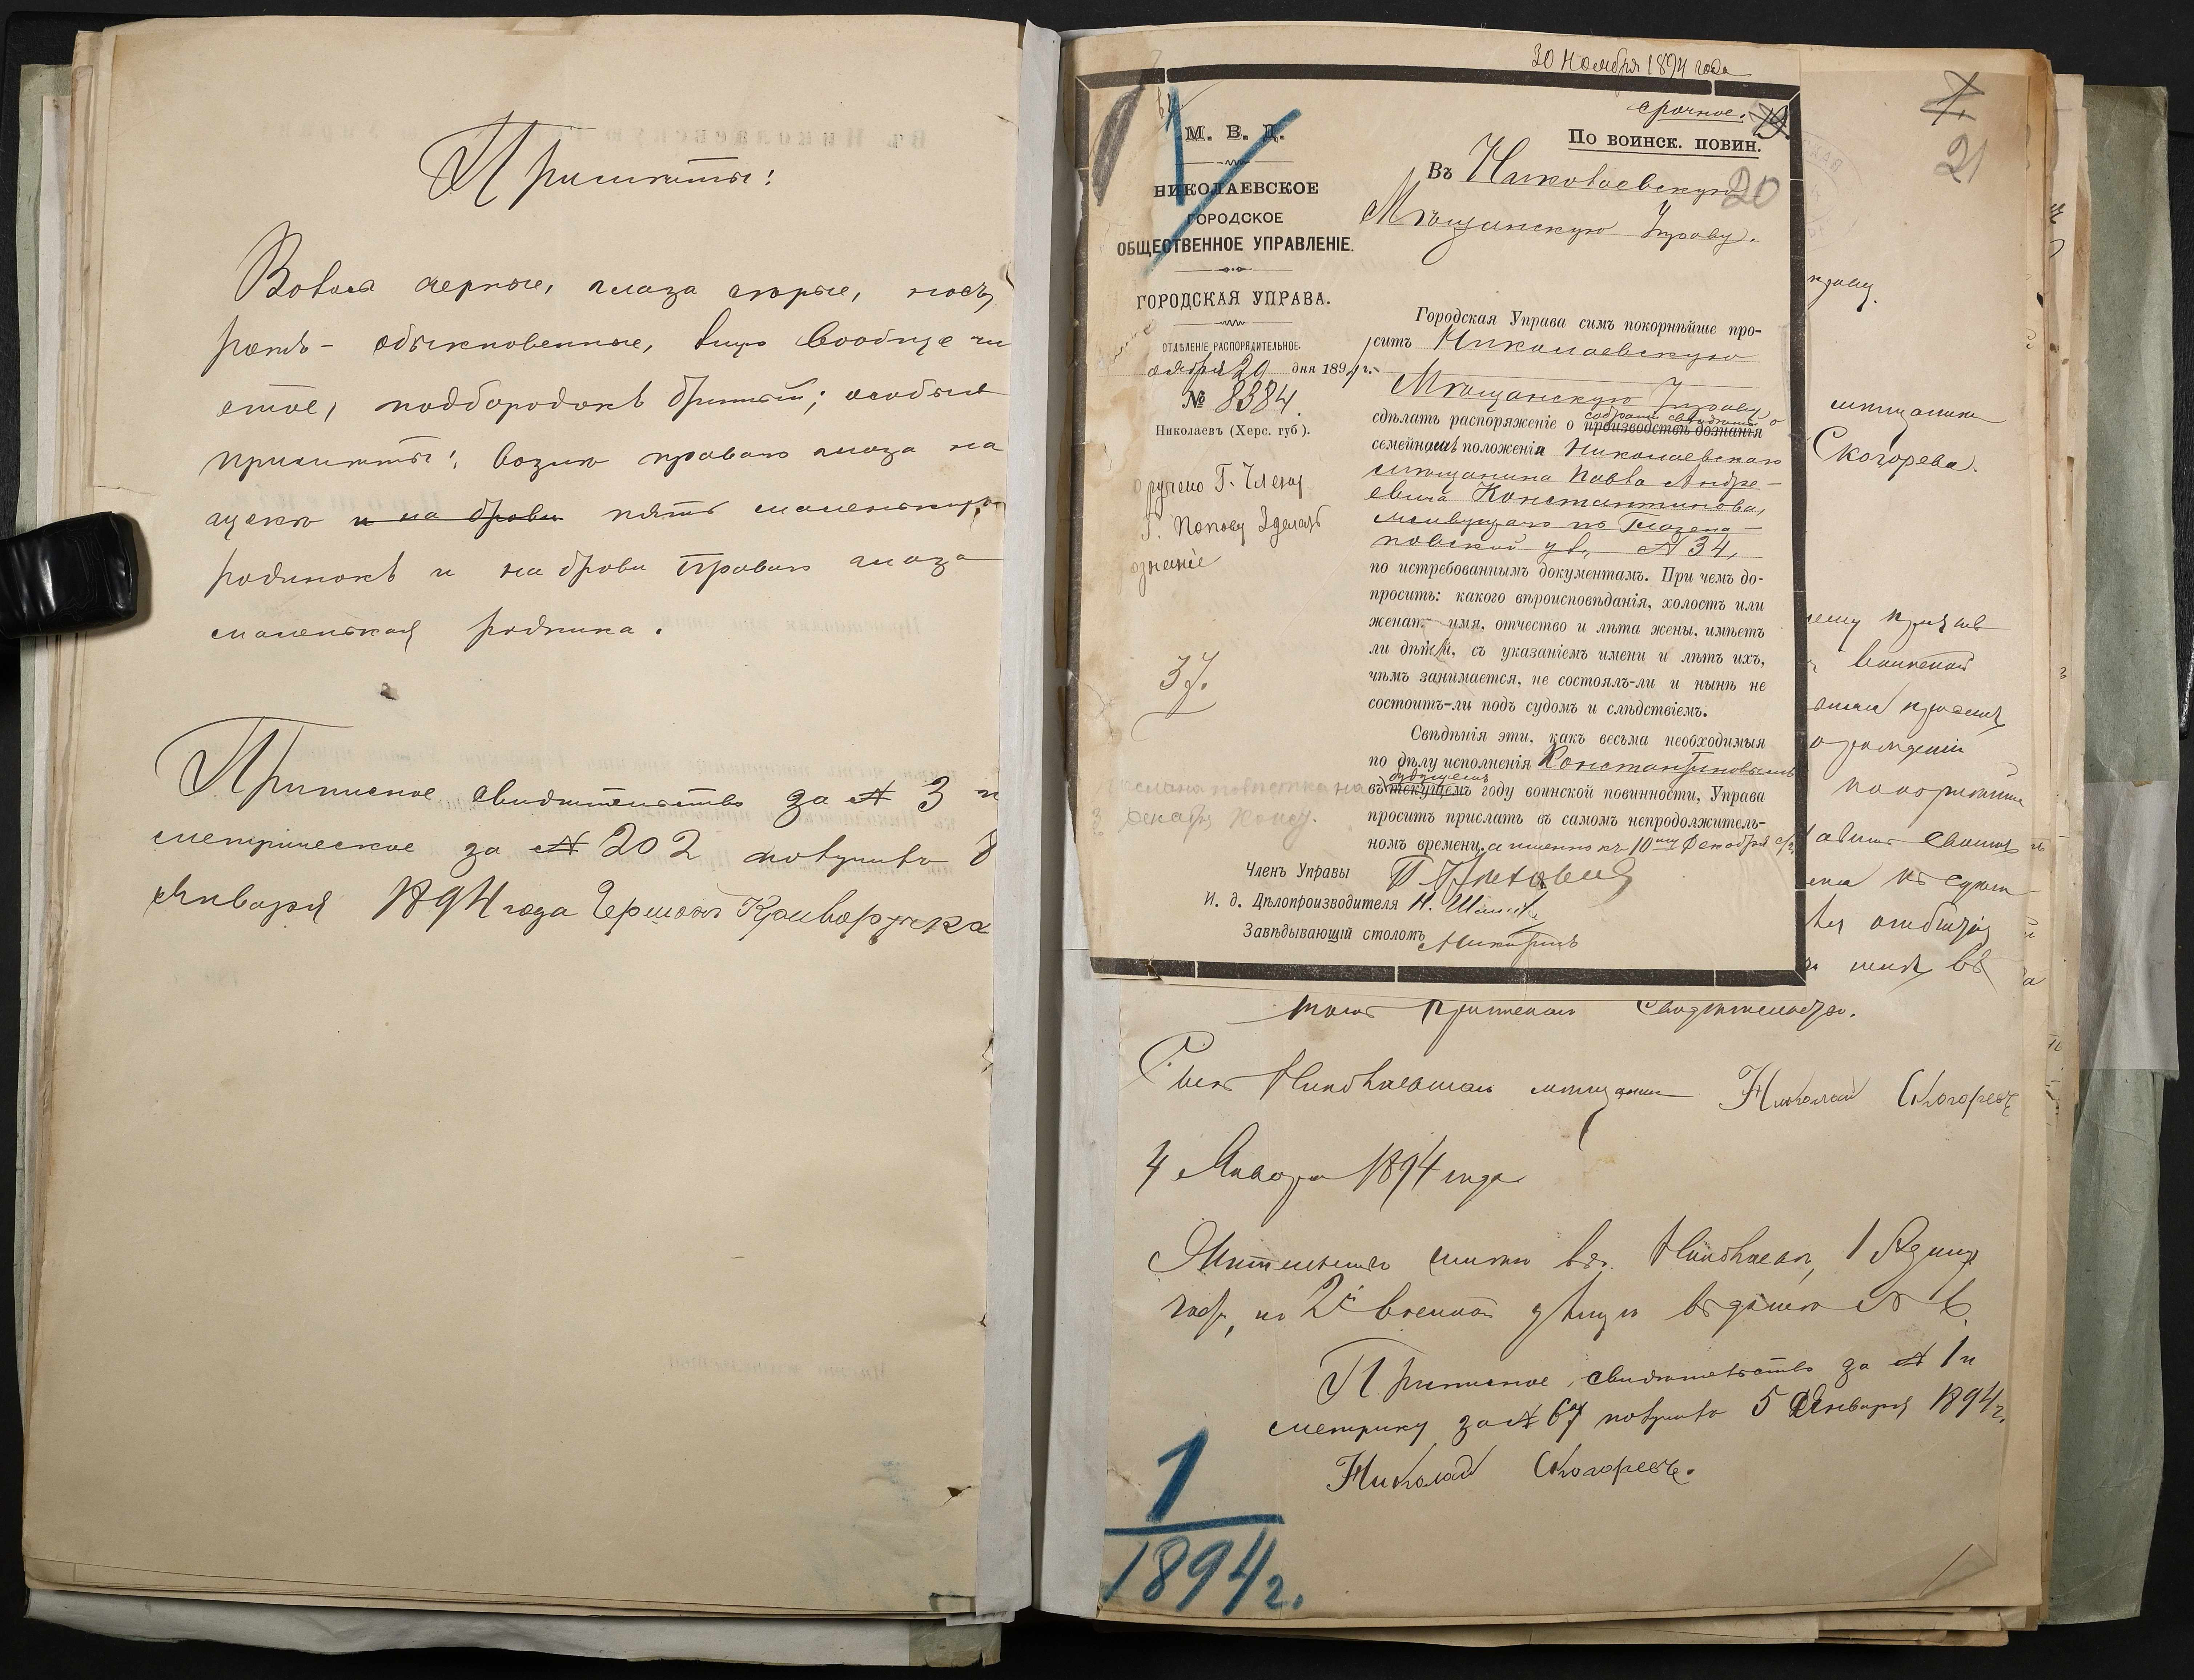 Примѣты:
Волоса черные, глаза сѣрые, носъ,
ротъ - обыкновенные, лицо вообще чи
стое, подбородокъ бритый; особыя
примѣты: возлѣ праваго глаза на
щекѣ и на брови пять маленькихъ
родинокъ и на брови праваго глаза
маленькая родинка.
Приписное свидѣтельство за № 3 и
метрическое за № 202 получилъ 8
Января 1894 года Гершонъ Криворучка
30 Ноября 1894 года
срочное. 19.
1
М. В. Д.
НИКОЛАЕВСКОЕ
ГОРОДСКОЕ
ОБЩЕСТВЕННОЕ УПРАВЛЕНІЕ.
ГОРОДСКАЯ УПРАВА.
ОТДѢЛЕНІЕ РАСПОРЯДИТЕЛЬНОЕ.
оября 29 дня 1894 г.
№ 8384.
Николаевъ (Херс. губ).
ручено Г. Члену
Г. Попову Зделать
ознаніе
37.
По воинск. повин.
Въ Николаевскую
20
Мѣщанскую Управу.
Городская Управа симъ покорнѣйше про-
ситъ Николаевскую
Мѣщанскую Управу
собраніи свѣдѣній о
сдѣлать распоряженіе о производствѣ дознанія
семейномъ положенія Николаевскаго
мѣщанина Павла Андре-
евича Константинова,
живущаго по Глазена-
повской ул. № 34,
по истребованнымъ документамъ. При чемъ до-
просить: какого вѣроисповѣданія, холостъ или
женатъ имя, отчество и лѣта жены, имѣетъ
ли дѣтей, съ указаніемъ имени и лѣтъ ихъ,
чѣмъ занимается, не состоялъ-ли и нынѣ не
состоитъ-ли подъ судомъ и слѣдствіемъ.
Свѣдѣнія эти, какъ весьма необходимыя
по дѣлу исполненія Константиновымъ
будущемъ
въ текущемъ году воинской повинности, Управа
проситъ прислать въ самомъ непродолжитель-
номъ времени, а именно къ 10му Декабря с/г.
послана повѣстка на
Декабря
Членъ Управы
И. д. Дѣлопроизводителя Н.
Завѣдывающій столомъ Никитинъ
1.
21
мѣщанина
Скогорева.
прошу
о рожденіи
въ
приписномъ Свидѣтельствѣ.
Николаевскій мѣщанинъ Николай Скогоревъ
4 Января 1894 года
Жительство имѣю въ г. Николаевѣ, 1 Адмир
части, по 2й Военной улицѣ въ домѣ № 6.
Приписное свидѣтельство за № 1 и
метрику за № 67 получилъ 5 Января 1894 г.
Николай Скогоревъ.
1
1894 г.